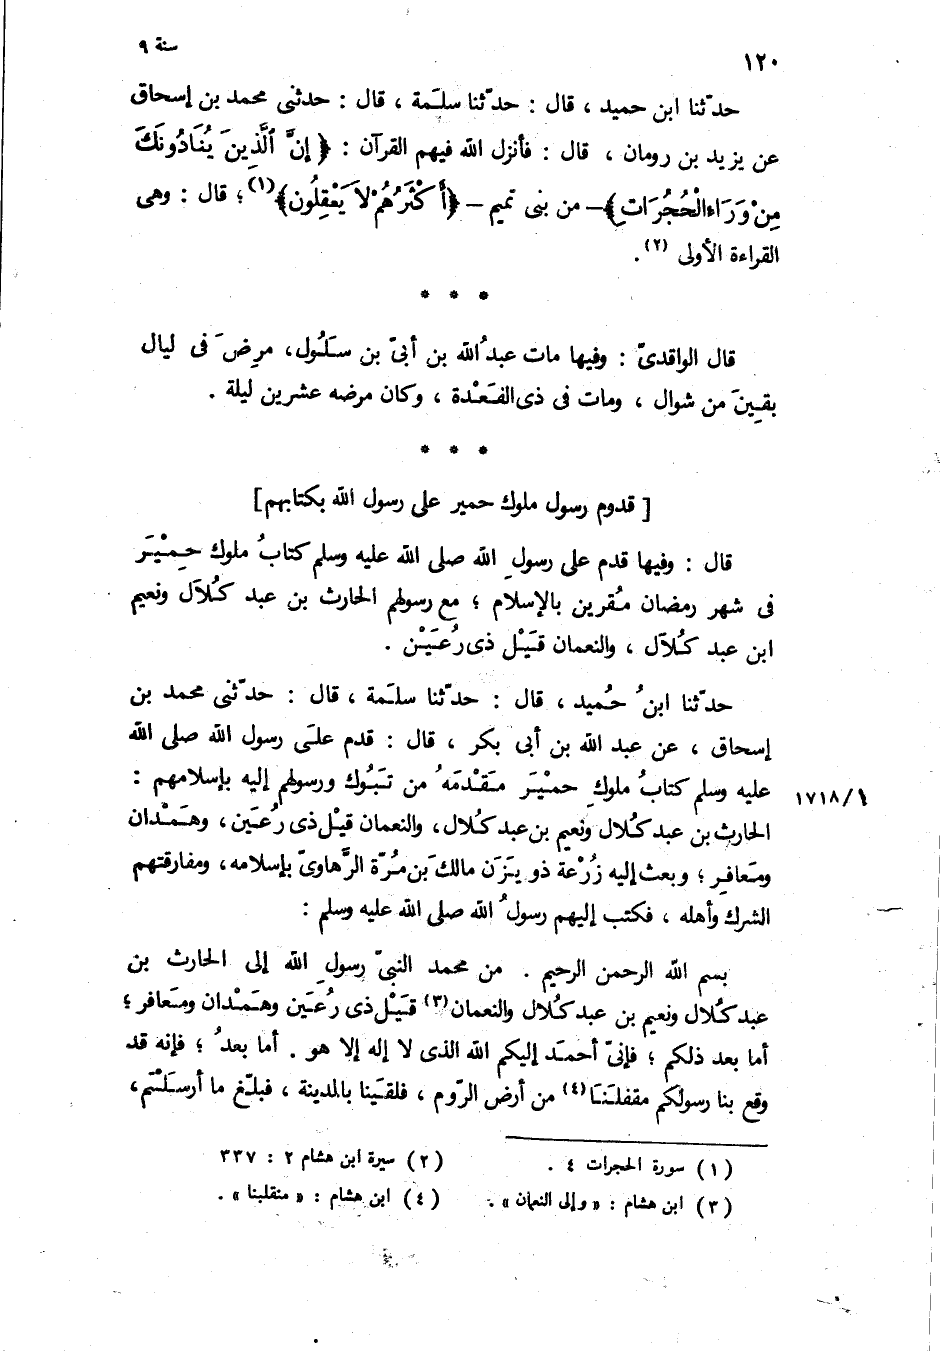 ١٢٠
سنة ٩
حدّثنا ابن حميد ، قال : حدّثنا سلَمة ، قال : حدثنى محمد بن إسحاق
عن يزيد بن رومان ، قال : فأنزل الله فيهم القرآن : ﴿ إِنَّ ٱلَّذِينَ يُنَادُونَكَ
مِنْ وَرَاءِ الْحُجُرَاتِ﴾ – من بنى تميم – ﴿أَكْثَرُهُمْ لاَ يَعْقِلُون﴾(١) ؛ قال : وهى
القراءة الأولى (٢) .
* * *
قال الواقدىّ : وفيها مات عبدُ الله بن أبىّ بن سَلُول، مرِضَ فى ليال
بقِينَ من شوال ، ومات فى ذى القَعْدة ، وكان مرضه عشرين ليلة .
* * *
[ قدوم رسول ملوك حمير على رسول الله بكتابهم]
قال : وفيها قدم على رسولِ الله صلى الله عليه وسلم كتابُ ملوك حِمْيَر
فى شهر رمضان مُقرين بالإسلام ؛ مع رسولهم الحارث بن عبد كُلآل ونعيم
ابن عبد كُلآل ، والنعمان قَيْل ذى رُعَيْن .
حدّثنا ابنُ حُميد ، قال : حدّثنا سلَمة ، قال : حدّثنى محمد بن
إسحاق ، عن عبد الله بن أبى بكر ، قال : قدم علَى رسول الله صلى الله
عليه وسلم كتابُ ملوكِ حمْيَر مَقْدمَهُ من تَبُوك ورسولهم إليه بإسلامهم :
١٧١٨/١
الحارث بن عبد كُلال ونعيم بن عبد كُلال، والنعمان قيْل ذى رُعَين ، وهَمْدان
ومَعافِر ؛ وبعث إليه زُرْعة ذو يَزَن مالكَ بن مُرّة الرَّهاوىّ بإسلامه، ومفارقتهم
الشرك وأهله ، فكتب إليهم رسولُ الله صلى الله عليه وسلم :
بسم الله الرحمن الرحيم . من محمد النبىّ رسولِ الله إلى الحارث بن
عبد كُلال ونعيم بن عبد كُلال والنعمان(٣) قَيْل ذى رُعَين وهَمْدان ومَعافر ؛
أما بعد ذلكم ؛ فإنىّ أحمَد إليكم الله الذى لا إله إلا هو . أما بعدُ ؛ فإنه قد
وقع بنا رسولكم مقفلَنَا(٤) من أرض الرّوم ، فلقيَنا بالمدينة ، فبلّغ ما أرسَلْتم،
(١) سورة الحجرات ٤ .
(٢) سيرة ابن هشام ٢ : ٣٣٧
(٣) ابن هشام : « وإلى النعمان » .
(٤) ابن هشام : « منقلبنا » .